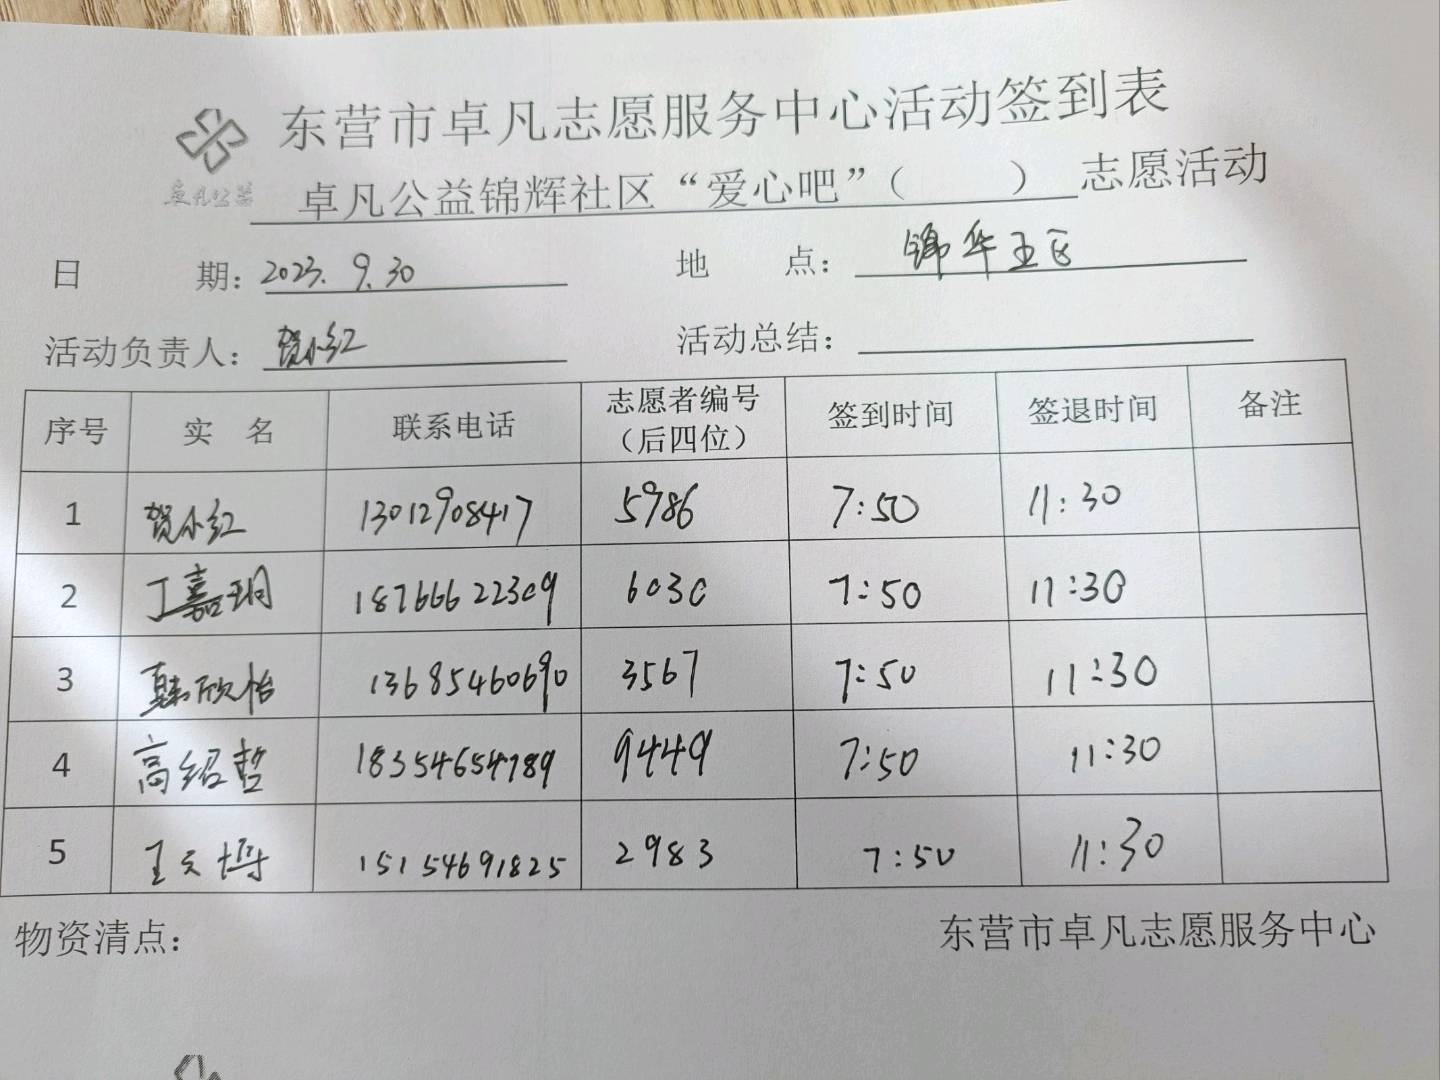 东营市卓凡志愿服务中心活动签到表
卓凡公益
卓凡公益锦辉社区“爱心吧”（ ）志愿活动
日 期：2023.9.30 地 点：锦华五区
活动负责人：贺小红 活动总结：
序号 实 名 联系电话 志愿者编号（后四位） 签到时间 签退时间 备注
1 贺小红 13012908417 5986 7:50 11:30
2 丁嘉玥 18766622309 6030 7:50 11:30
3 韩欣怡 13685460690 3567 7:50 11:30
4 高绍哲 18354654789 9449 7:50 11:30
5 王天 15154691825 2983 7:50 11:30
物资清点： 东营市卓凡志愿服务中心